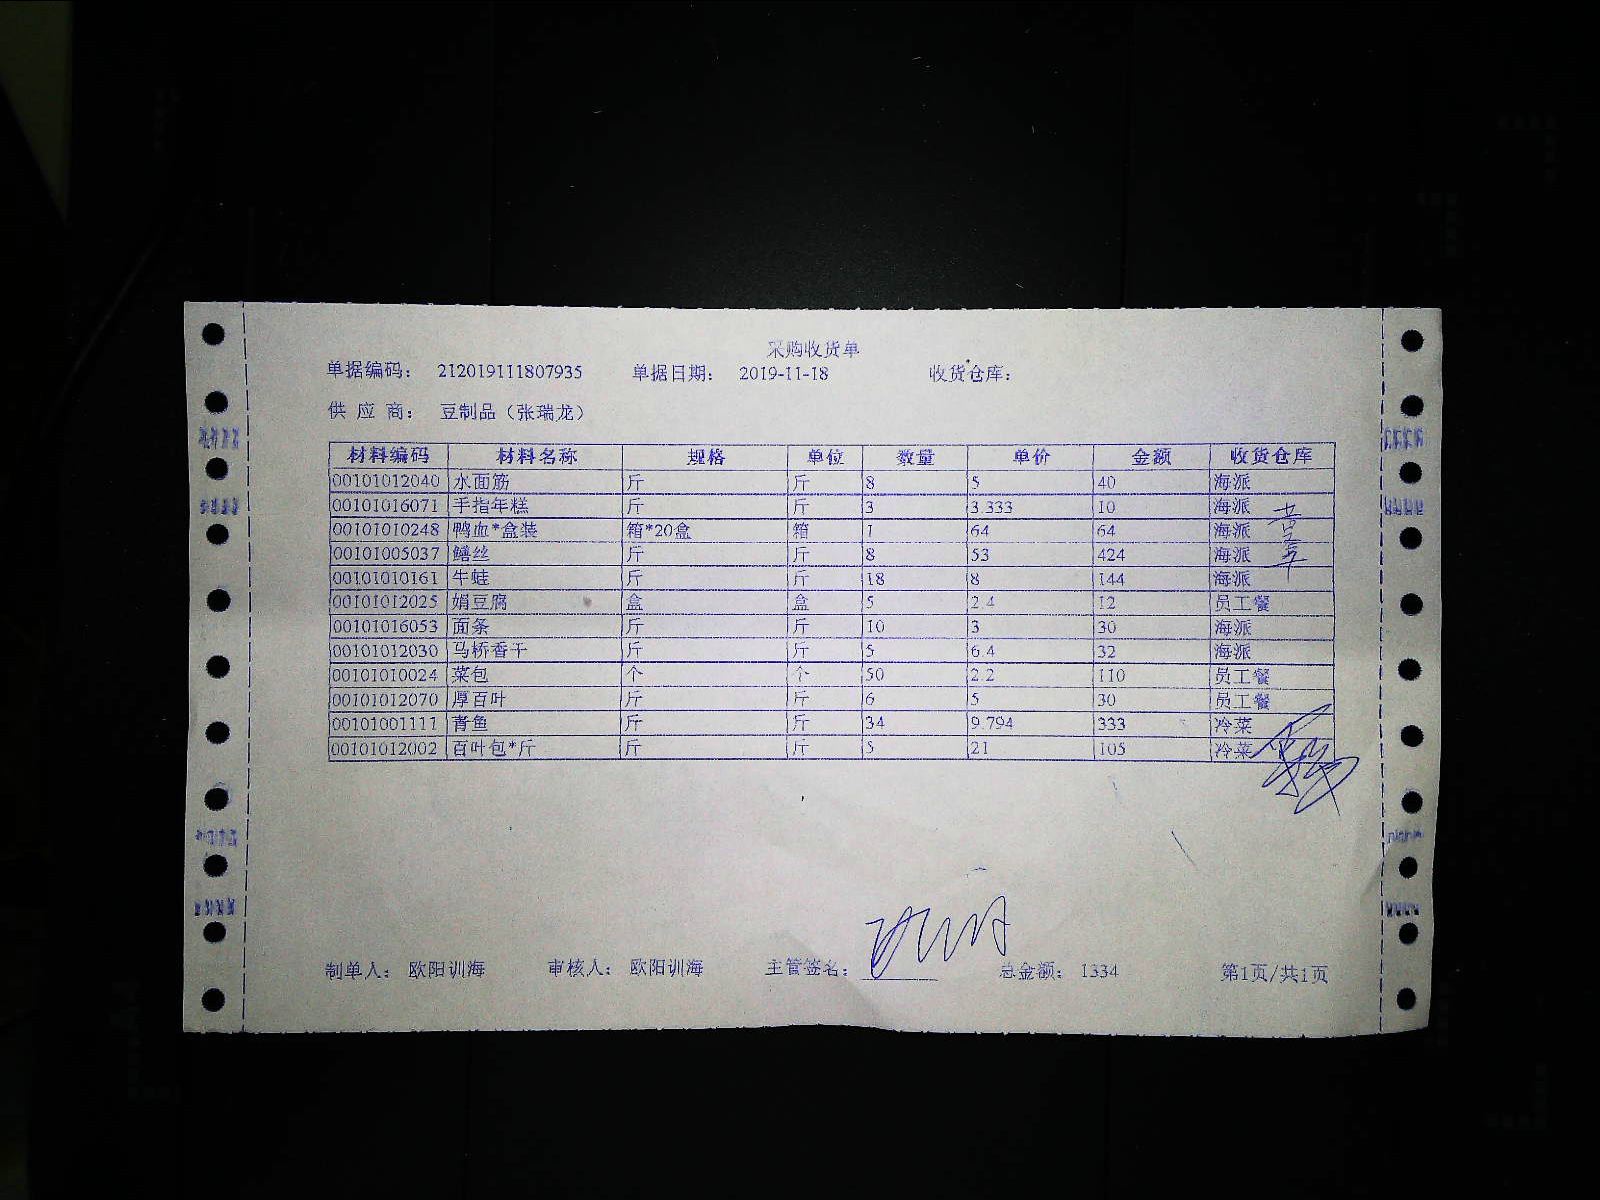 采购收货单
单据编码： 212019111807935 单据日期： 2019-11-18 收货仓库：
供 应 商： 豆制品（张瑞龙）
材料编码 材料名称 规格 单位 数量 单价 金额 收货仓库
00101012040 水面筋 斤 斤 8 5 40 海派
00101016071 手指年糕 斤 斤 3 3.333 10 海派
00101010248 鸭血*盒装 箱*20盒 箱 1 64 64 海派
00101005037 鳝丝 斤 斤 8 53 424 海派
00101010161 牛蛙 斤 斤 18 8 144 海派
00101012025 娟豆腐 盒 盒 5 2.4 12 员工餐
00101016053 面条 斤 斤 10 3 30 海派
00101012030 马桥香干 斤 斤 5 6.4 32 海派
00101010024 菜包 个 个 50 2.2 110 员工餐
00101012070 厚百叶 斤 斤 6 5 30 员工餐
00101001111 青鱼 斤 斤 34 9.794 333 冷菜
00101012002 百叶包*斤 斤 斤 5 21 105 冷菜
制单人： 欧阳训海 审核人： 欧阳训海 主管签名： 总金额： 1334 第1页/共1页